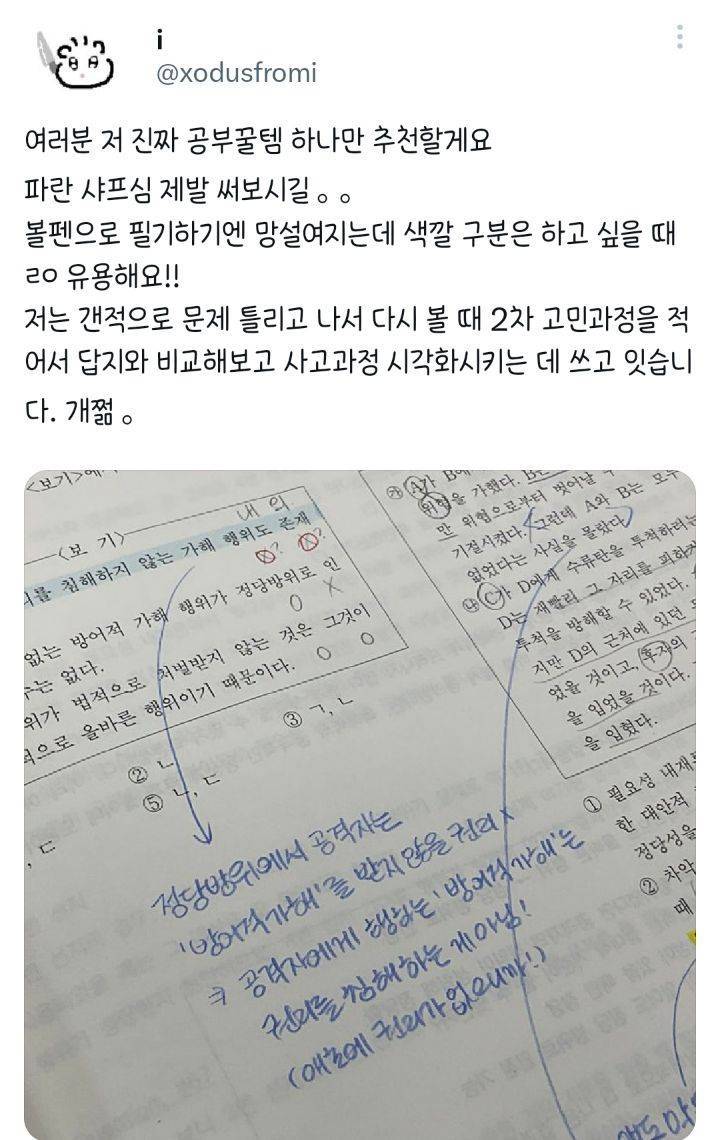 i
@xodusfromi
여러분 저 진짜 공부꿀템 하나만 추천할게요
파란 샤프심 제발 써보시길 。。
볼펜으로 필기하기엔 망설여지는데 색깔 구분은 하고 싶을 때
ㄹㅇ 유용해요!!
저는 갠적으로 문제 틀리고 나서 다시 볼 때 2차 고민과정을 적
어서 답지와 비교해보고 사고과정 시각화시키는 데 쓰고 잇습니
다. 개쩖 。
<보기>에
내 의
<보 기>
를 침해하지 않는 가해 행위도 존재
X? X?
없는 방어적 가해 행위가 정당방위로 인
수는 없다.
O X
위가 법적으로 처벌받지 않는 것은 그것이
적으로 올바른 행위이기 때문이다.
O O
② ㄴ
③ ㄱ, ㄴ
⑤ ㄴ, ㄷ
, ㄷ
정당방위에서 공격자는
'방어적가해'를 받지 않을 권리 X
'방어적 가해'는
→ 공격자에게 행하는
권리를 침해하는 게 아님!
(애초에 권리가 없으니까!)
㉮ A가 B에
위협을 가했다. B는
만 위험으로부터 벗어날 수
기절시켰다. 그런데 A와 B는 모두
없었다는 사실을 몰랐다.
㉯ C가 D에게 수류탄을 투척하려는
D는 재빨리 그 자리를 피하
투척을 방해할 수 있었다.
지만 D의 근처에 있던
었을 것이고, 후자의
을 입었을 것이다.
을 입혔다.
① 필요성 내재
한 대안적
정당성을
② 차악
때